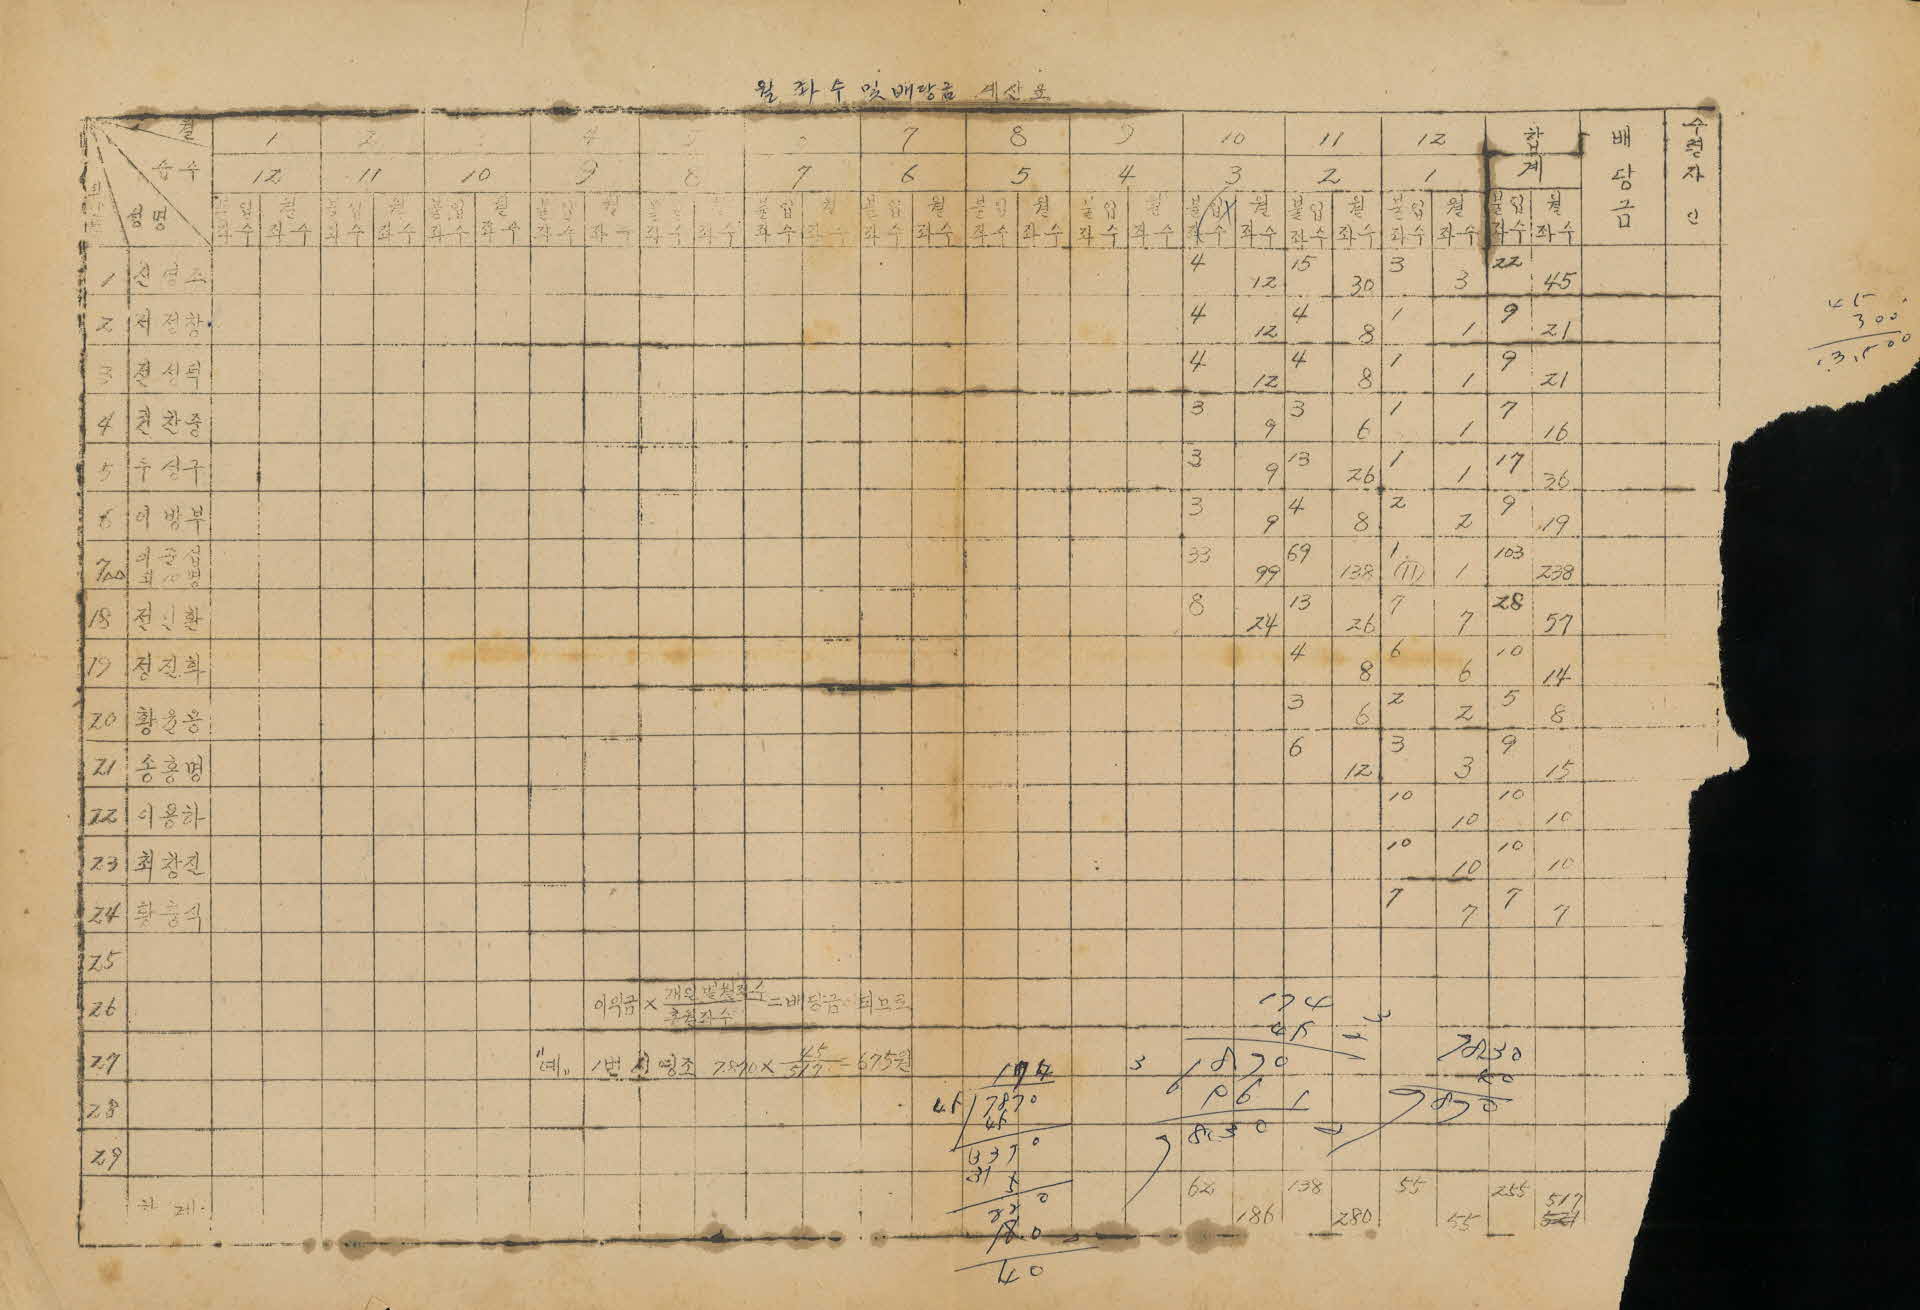 월 좌 수 및 배당금 계산표
월 1 2 4 5 6 7 8 9 10 11 12 합계 배당금 수령자 인
12 11 10 9 8 7 6 5 4 3 2 1
성명 불입좌수 월좌수 불입좌수 월좌수 불입좌수 월좌수 불입좌수 월좌수 불입좌수 월좌수 불입좌수 월좌수 불입좌수 월좌수 불입좌수 월좌수 불입좌수 월좌수 불입좌수 월좌수 불입좌수 월좌수 불입좌수 월좌수 불입좌수 월좌수
1 신영조 4 12 15 30 3 3 22 45
2 4 12 4 8 1 1 9 21
3 4 12 4 8 1 1 9 21
4 3 9 3 6 1 1 7 16
5 3 9 13 26 1 1 17 36
6 이방부 3 9 4 8 2 2 9 19
7 33 99 69 138 1 (11) 1 103 238
18 8 24 13 26 7 7 28 57
19 4 8 6 6 10 14
20 황윤용 3 6 2 2 5 8
21 송홍명 6 12 3 3 9 15
22 이용하 10 10 10 10
23 최창진 10 10 10 10
24 7 7 7 7
25
26 이익금 × 개인별월좌수 / 총월좌수 = 배당금이 되므로
27 "예" 1번 신영조 7870 × 45/517 = 675원
28
29
합계 62 186 138 280 55 55 255 517
45
300
13,500
174
45
174
45 7870
45